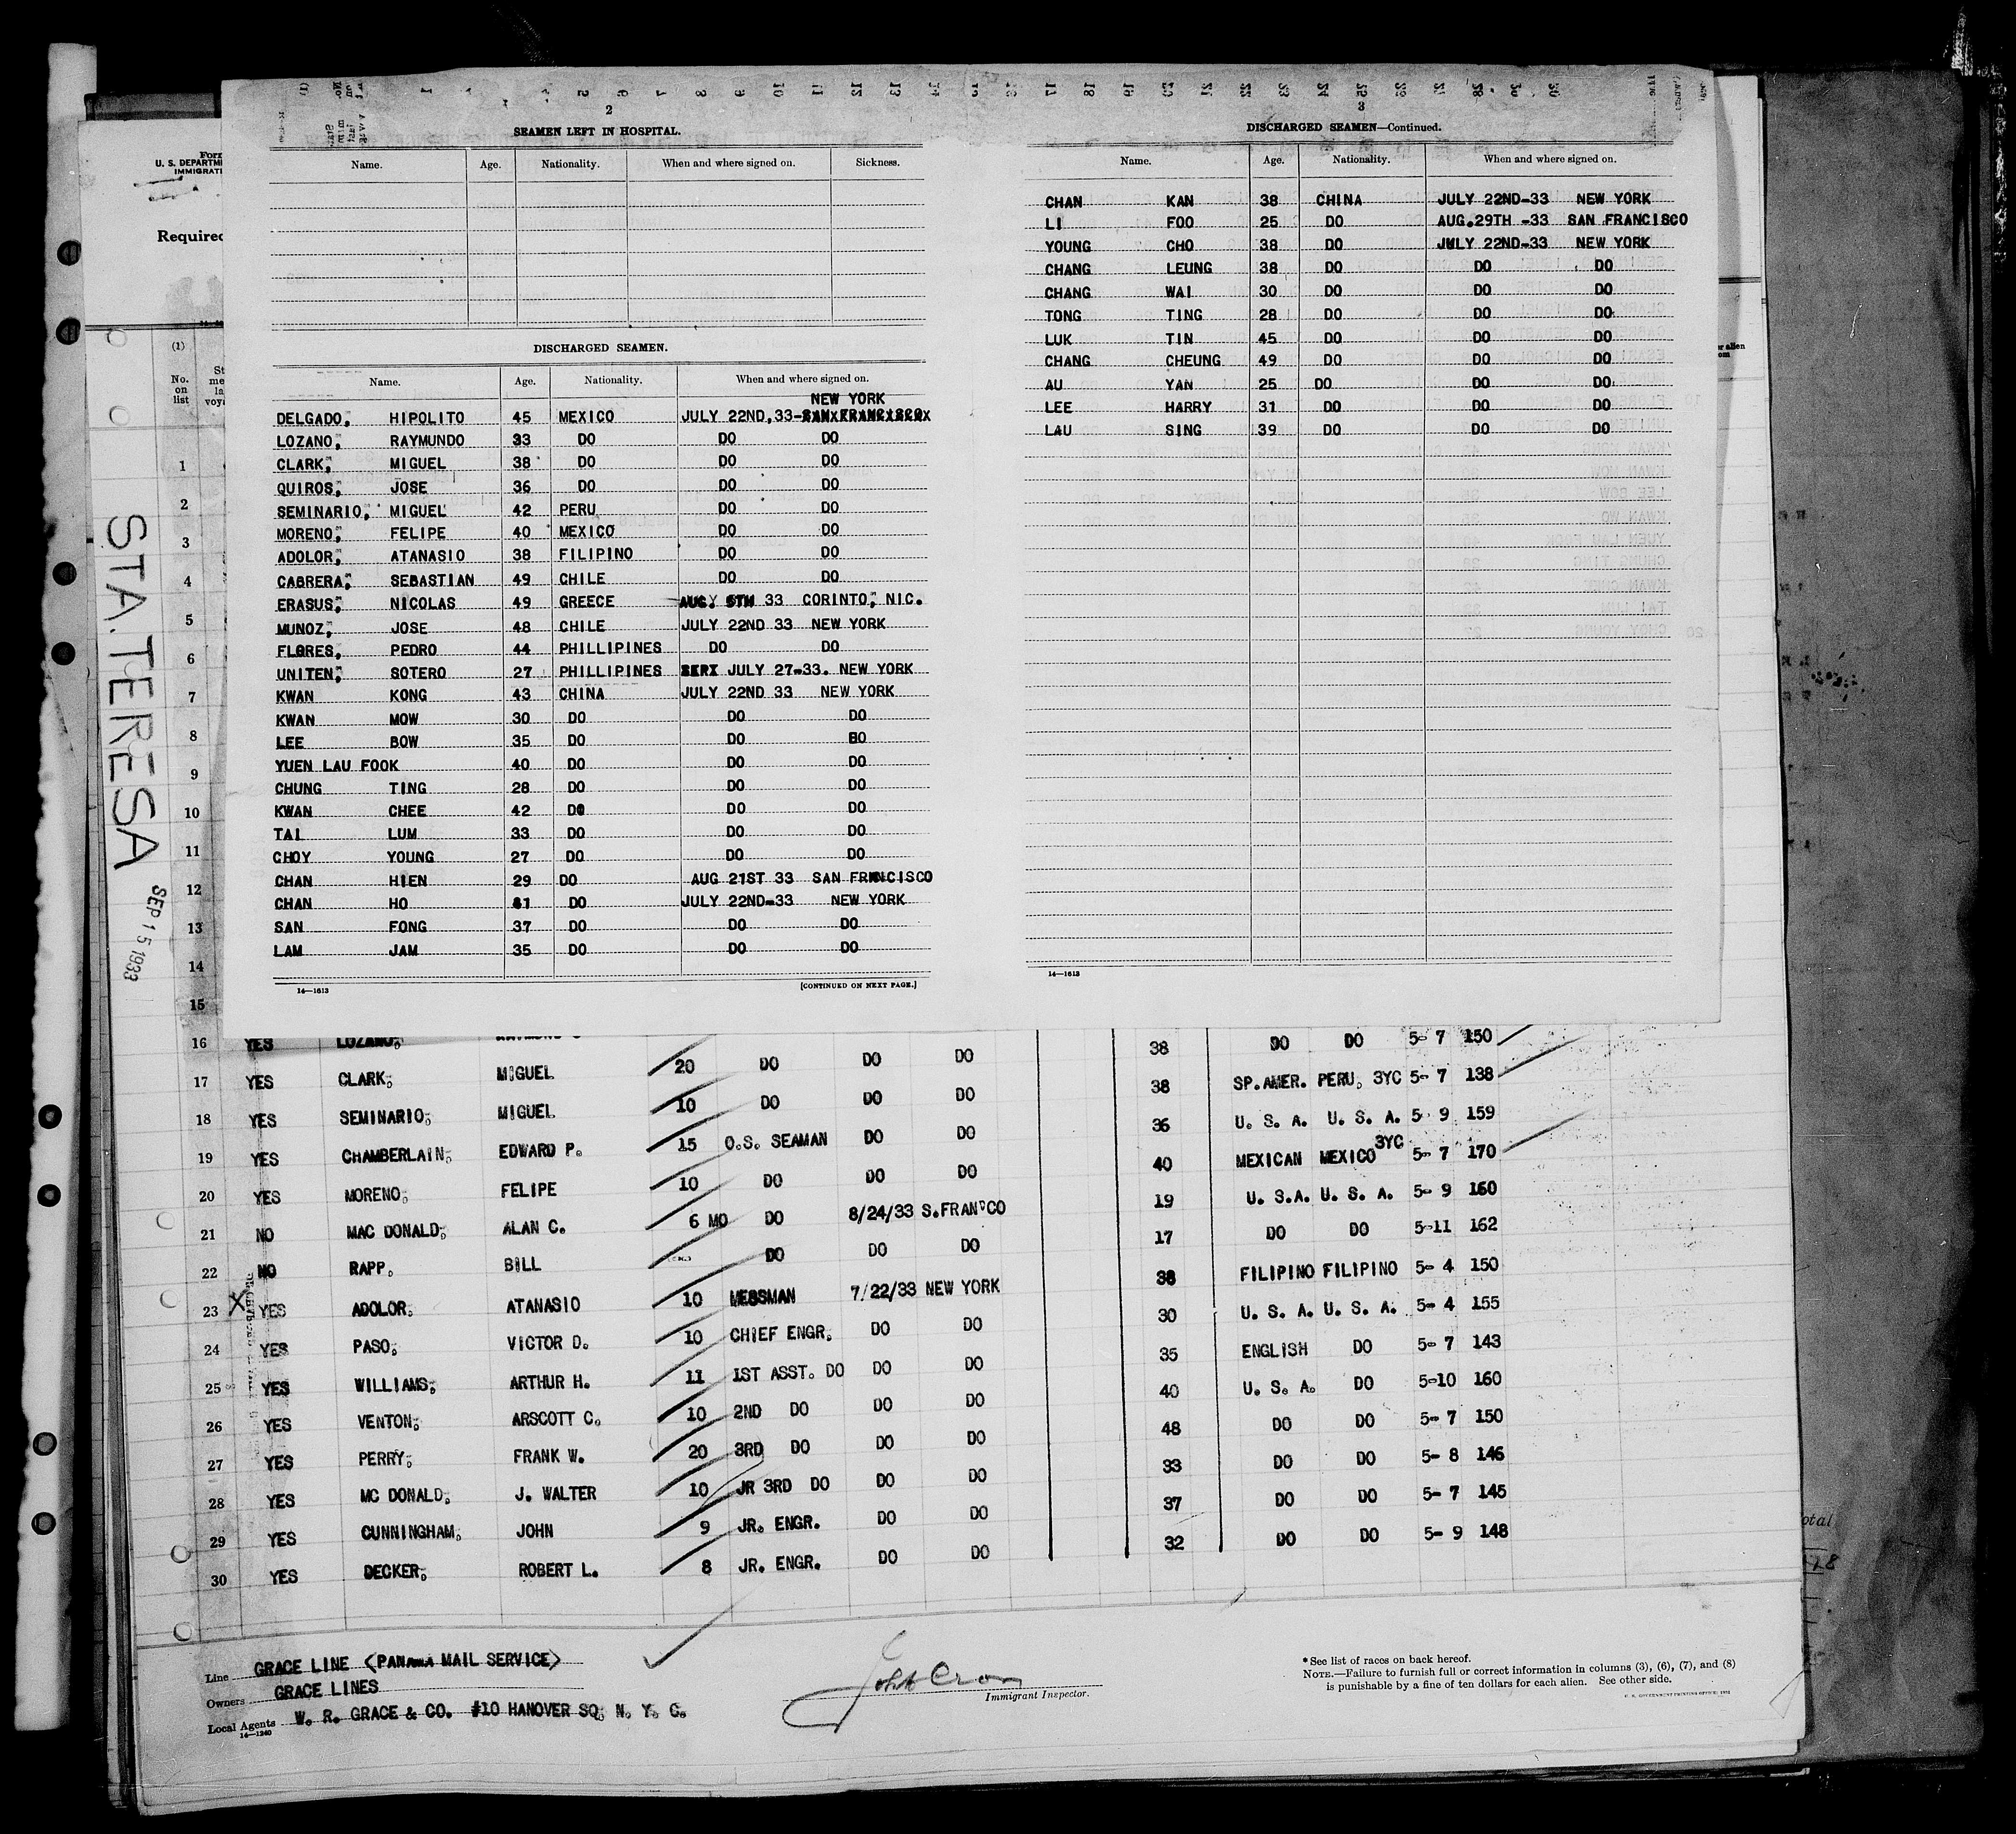 2
SEAMEN LEFT IN HOSPITAL.
Name. Age. Nationality. When and where signed on. Sickness.
DISCHARGED SEAMEN.
Name. Age. Nationality. When and where signed on.
NEW YORK
DELGADO, HIPOLITO 45 MEXICO JULY 22ND,33-SANXFRANCISCOX
LOZANO, RAYMUNDO 33 DO DO DO
CLARK, MIGUEL 38 DO DO DO
QUIROS, JOSE 36 DO DO DO
SEMINARIO, MIGUEL 42 PERU DO DO
MORENO, FELIPE 40 MEXICO DO DO
ADOLOR, ATANASIO 38 FILIPINO DO DO
CABRERA, SEBASTIAN 49 CHILE DO DO
ERASUS, NICOLAS 49 GREECE AUG. 5TH 33 CORINTO, NIC.
MUNOZ, JOSE 48 CHILE JULY 22ND 33 NEW YORK
FLORES, PEDRO 44 PHILLIPINES DO DO
UNITEN, SOTERO 27 PHILLIPINES JULY 27-33. NEW YORK
KWAN KONG 43 CHINA JULY 22ND 33 NEW YORK
KWAN MOW 30 DO DO DO
LEE BOW 35 DO DO DO
YUEN LAU FOOK 40 DO DO DO
CHUNG TING 28 DO DO DO
KWAN CHEE 42 DO DO DO
TAI LUM 33 DO DO DO
CHOY YOUNG 27 DO DO DO
CHAN HIEN 29 DO AUG 21ST 33 SAN FRNCISCO
CHAN HO DO JULY 22ND-33 NEW YORK
SAN FONG 37 DO DO DO
LAM JAM 35 DO DO DO
14—1613 [CONTINUED ON NEXT PAGE.]
3
DISCHARGED SEAMEN—Continued.
Name. Age. Nationality. When and where signed on.
CHAN KAN 38 CHINA JULY 22ND-33 NEW YORK
LI FOO 25 DO AUG.29TH -33 SAN FRANCISCO
YOUNG CHO 38 DO JULY 22ND-33 NEW YORK
CHANG LEUNG 38 DO DO DO
CHANG WAI 30 DO DO DO
TONG TING 28 DO DO DO
LUK TIN 45 DO DO DO
CHANG CHEUNG 49 DO DO DO
AU YAN 25 DO DO DO
LEE HARRY 31 DO DO DO
LAU SING 39 DO DO DO
14—1613
Form
U. S. DEPARTM
IMMIGRATI
Required
(1)
No. on list
STA. TERESA
SEP 15 1933
1
2
3
4
5
6
7
8
9
10
11
12
13
14
15
16 YES LOZANO,
17 YES CLARK, MIGUEL 20 DO DO DO 38 DO DO 5- 7 150
18 YES SEMINARIO, MIGUEL 10 DO DO DO 38 SP.AMER. PERU, 3YC 5- 7 138
19 YES CHAMBERLAIN, EDWARD P. 15 O.S. SEAMAN DO DO 36 U. S. A. U. S. A. 5- 9 159
20 YES MORENO, FELIPE 10 DO DO DO 40 MEXICAN MEXICO 3YC 5- 7 170
21 NO MAC DONALD, ALAN C. 6 MO DO 8/24/33 S.FRAN'CO 19 U. S.A. U. S. A. 5- 9 160
22 NO RAPP, BILL DO DO DO 17 DO DO 5-11 162
23 X YES ADOLOR, ATANASIO 10 MESSMAN 7/22/33 NEW YORK 38 FILIPINO FILIPINO 5- 4 150
24 YES PASO, VICTOR D. 10 CHIEF ENGR. DO DO 30 U. S. A. U. S. A. 5- 4 155
25 YES WILLIAMS, ARTHUR H. 11 1ST ASST. DO DO DO 35 ENGLISH DO 5- 7 143
26 YES VENTON, ARSCOTT C. 10 2ND DO DO DO 40 U. S. A. DO 5-10 160
27 YES PERRY, FRANK W. 20 3RD DO DO DO 48 DO DO 5- 7 150
28 YES MC DONALD, J. WALTER 10 JR 3RD DO DO DO 33 DO DO 5- 8 146
29 YES CUNNINGHAM, JOHN 9 JR. ENGR. DO DO 37 DO DO 5- 7 145
30 YES DECKER, ROBERT L. 8 JR. ENGR. DO DO 32 DO DO 5- 9 148
Line GRACE LINE (PANAMA MAIL SERVICE)
Owners GRACE LINES
Local Agents W. R. GRACE & CO. #10 HANOVER SQ, N. Y. C.
14—1240
Immigrant Inspector.
* See list of races on back hereof.
NOTE.—Failure to furnish full or correct information in columns (3), (6), (7), and (8)
is punishable by a fine of ten dollars for each alien. See other side.